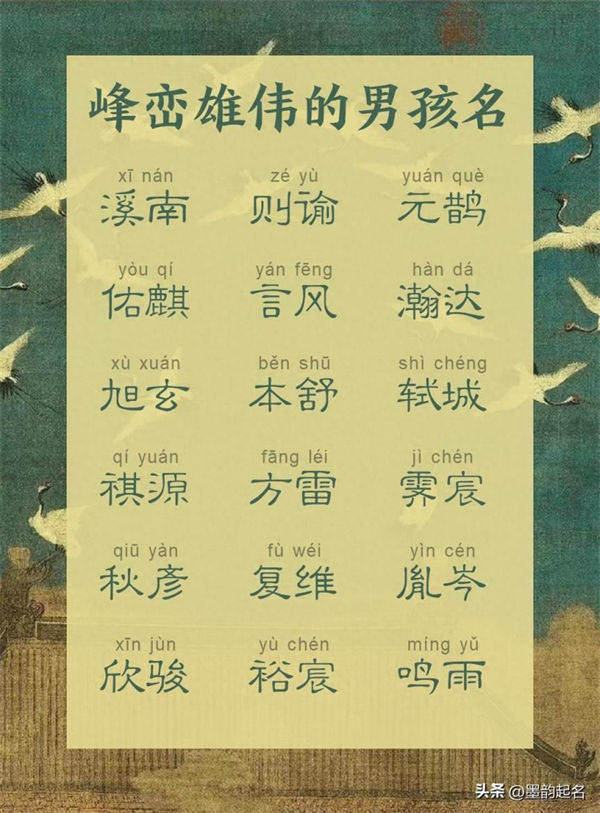 峰峦雄伟的男孩名
xī nán zé yù yuán què
溪南 则谕 元鹊
yòu qí yán fēng hàn dá
佑麒 言风 瀚达
xù xuán běn shū shì chéng
旭玄 本舒 轼城
qí yuán fāng léi jì chén
祺源 方雷 霁宸
qiū yàn fù wéi yìn cén
秋彦 复维 胤岑
xīn jùn yù chén míng yǔ
欣骏 裕宸 鸣雨
头条 @墨韵起名